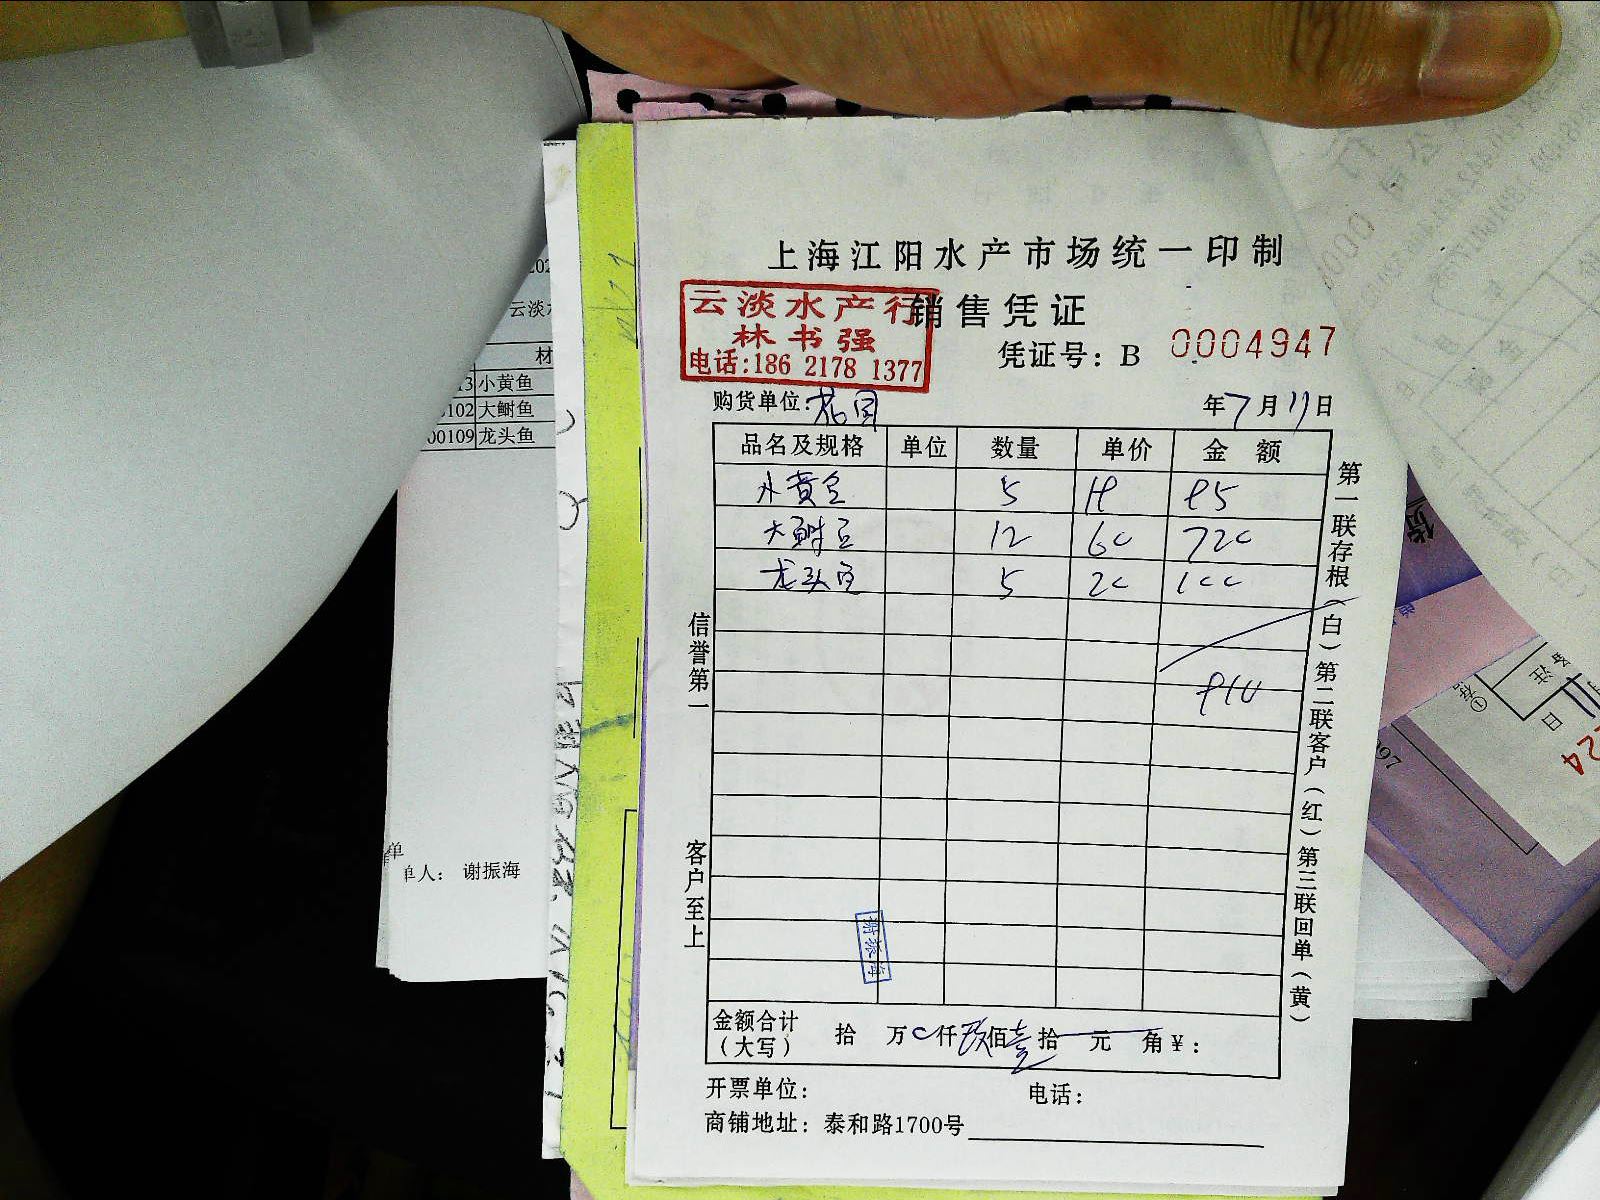 上海江阳水产市场统一印制
销售凭证
云淡水产行
林书强
电话:186 2178 1377
凭证号: B 0004947
购货单位:
年7月11日
品名及规格 单位 数量 单价 金额
小黄鱼 5 19 95
大鲥鱼 12 60 720
龙头鱼 5 20 100
910
信誉第一
客户至上
第一联存根(白)第二联客户(红)第三联回单(黄)
谢振海
金额合计
(大写) 拾 万0仟玖佰壹拾 元 角¥:
开票单位: 电话:
商铺地址: 泰和路1700号
云淡
材
13 小黄鱼
0102 大鲥鱼
00109 龙头鱼
单
单人: 谢振海
备注
日
24
97